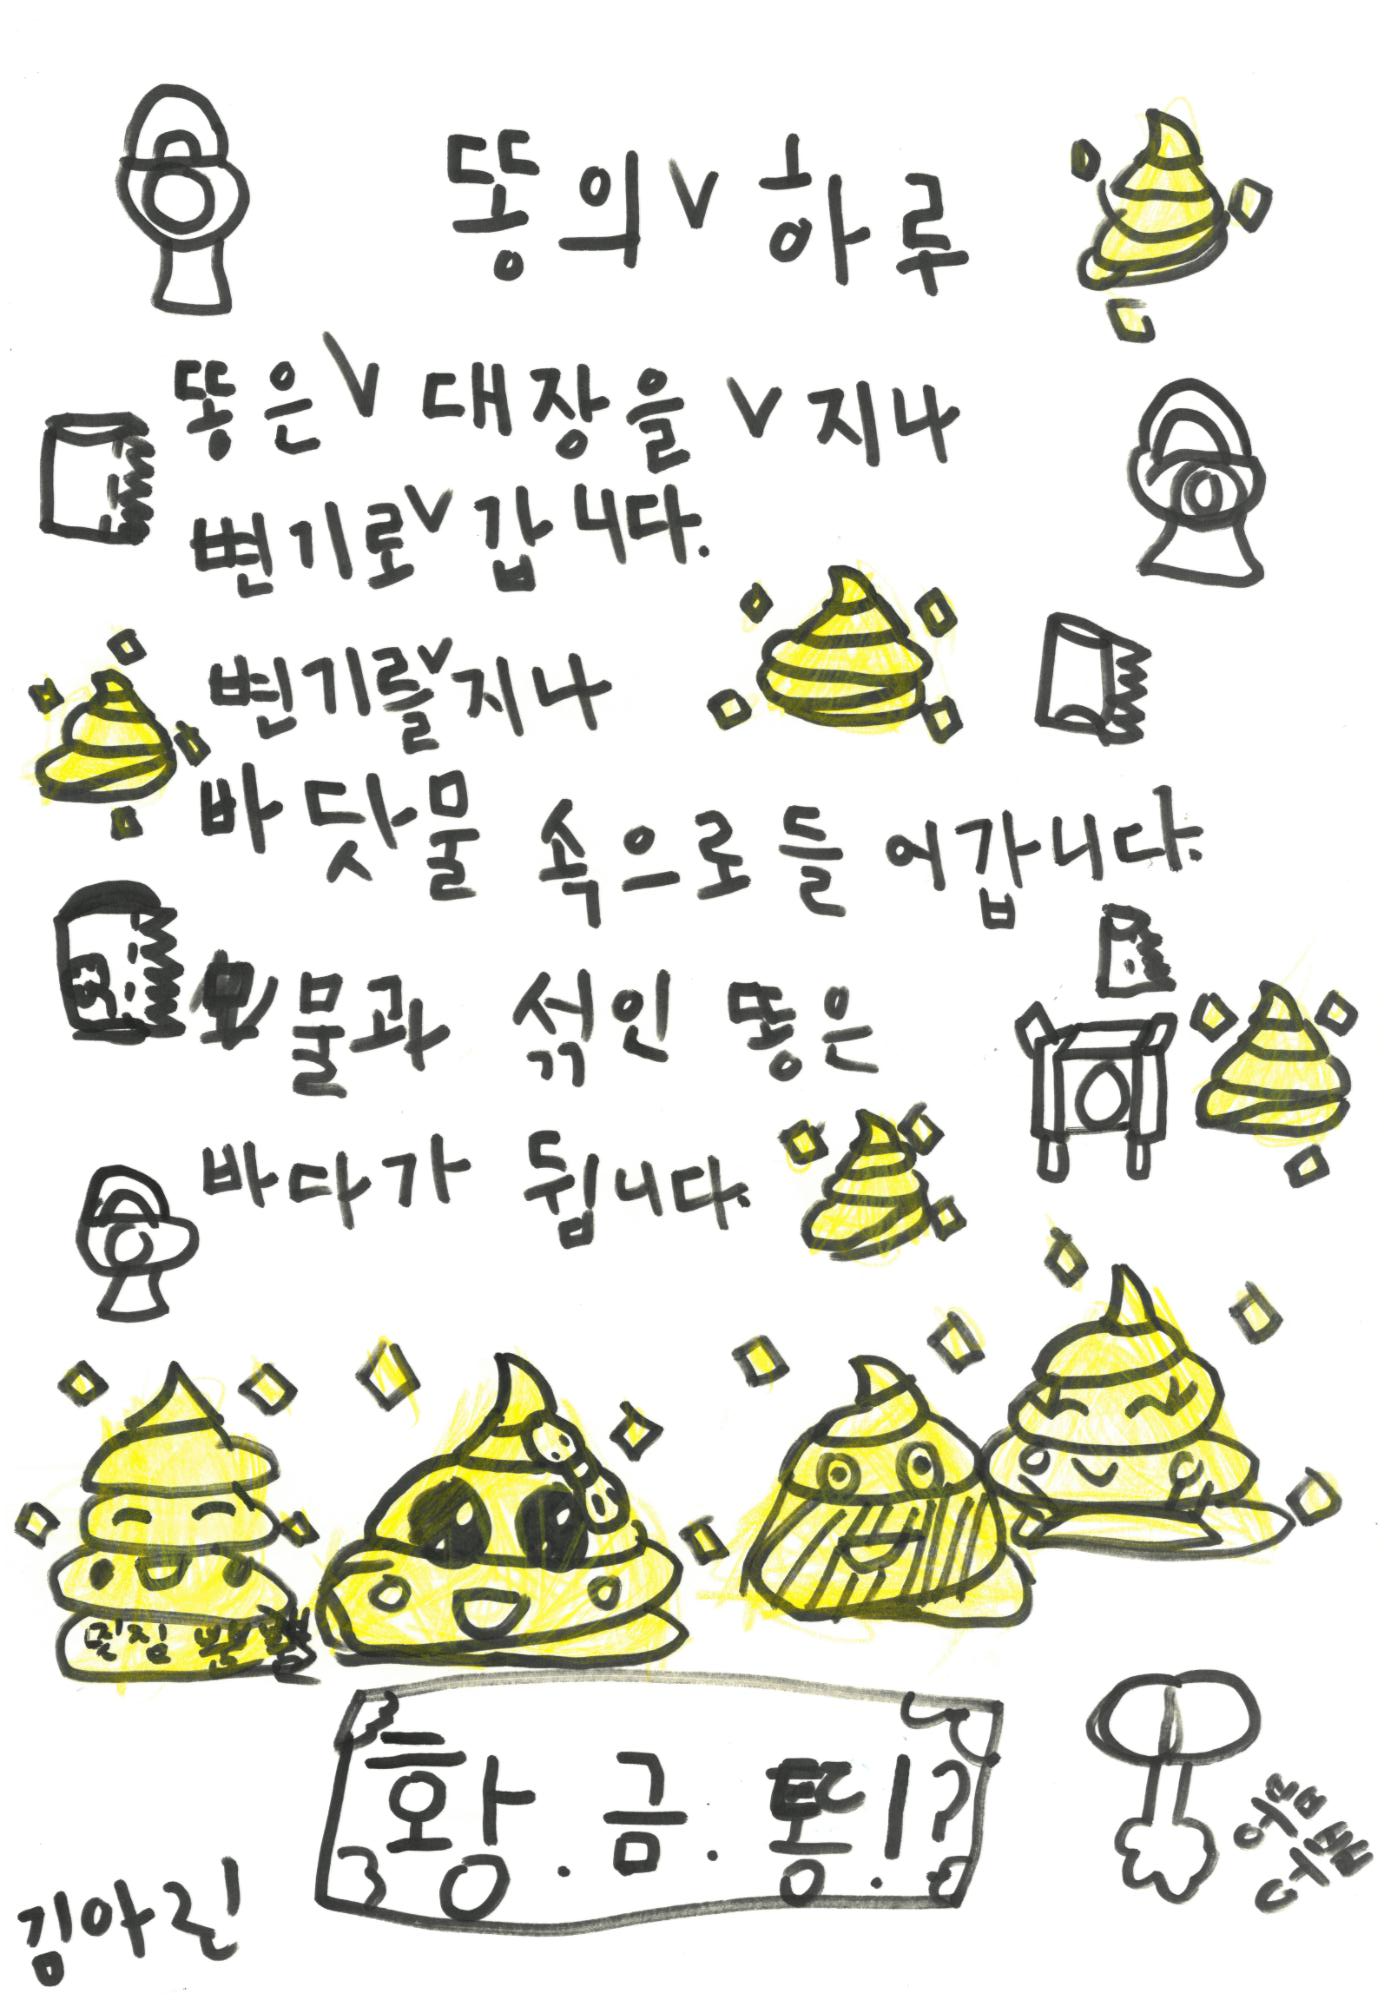 똥의∨하루
똥은∨대장을∨지나
변기로∨갑니다.
변기를∨지나
바닷물 속으로들어갑니다.
물과 섞인 똥은
바다가 됩니다.
황.금.똥!?
김아린